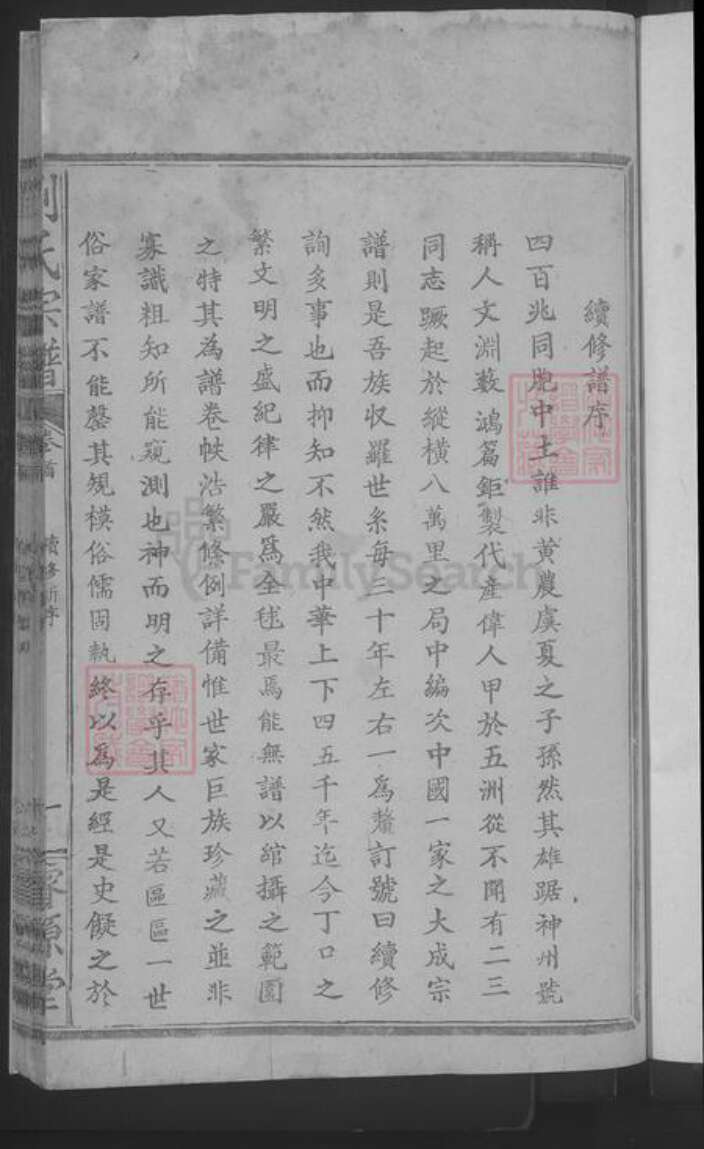 續修譜序
四百兆同胞中土誰非黃農虞夏之子孫然其雄踞神州號
稱人文淵藪鴻篇鉅製代產偉人甲於五洲從不聞有二三
同志蹶起於縱橫八萬里之局中編次中國一家之大成宗
譜則是吾族收羅世系每三十年左右一為釐訂號曰續修
詢多事也而抑知不然我中華上下四五千年迄今丁口之
繁文明之盛紀律之嚴為全球最焉能無譜以綰攝之範圍
之特其為譜卷帙浩繁條例詳備惟世家巨族珍藏之並非
寡識粗知所能窺測也神而明之存乎其人又若區區一世
俗家譜不能罄其規模俗儒固執終以為是經是史儗之於
劉氏宗譜
卷首
續修新序
一
FamilySearch